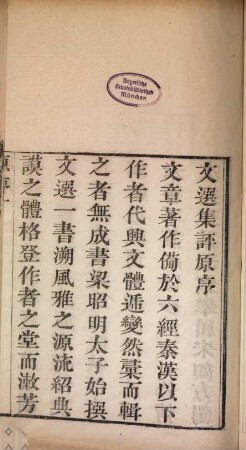 Bayerische
Staatsbibliothek
München
文選集評原序
文章著作備於六經秦漢以下
作者代興文體遞變然彙而輯
之者無成書梁昭明太子始撰
文選一書溯風雅之源流紹典
謨之體格登作者之堂而漱芳